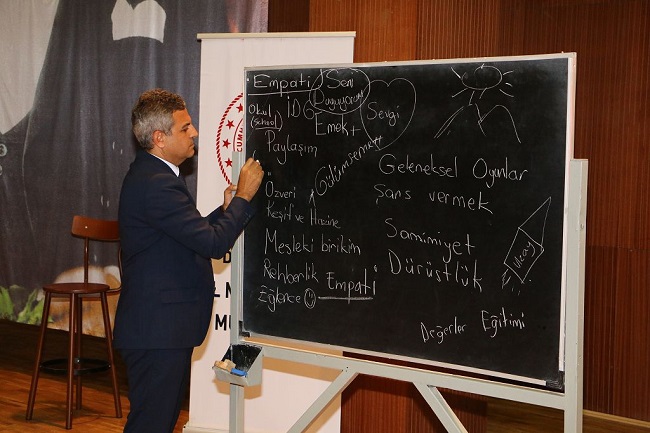 Empati
Seni
Duyuyorum
Okul
(School)
İDG
Emek+
Sevgi
Paylaşım
Gülümsemek
Geleneksel Oyunlar
Şans vermek
Özveri
Keşif ve Hazine
Mesleki birikim
Samimiyet
Dürüstlük
Uzay
Rehberlik
Empati
Eğlence
Değerler Eğitimi